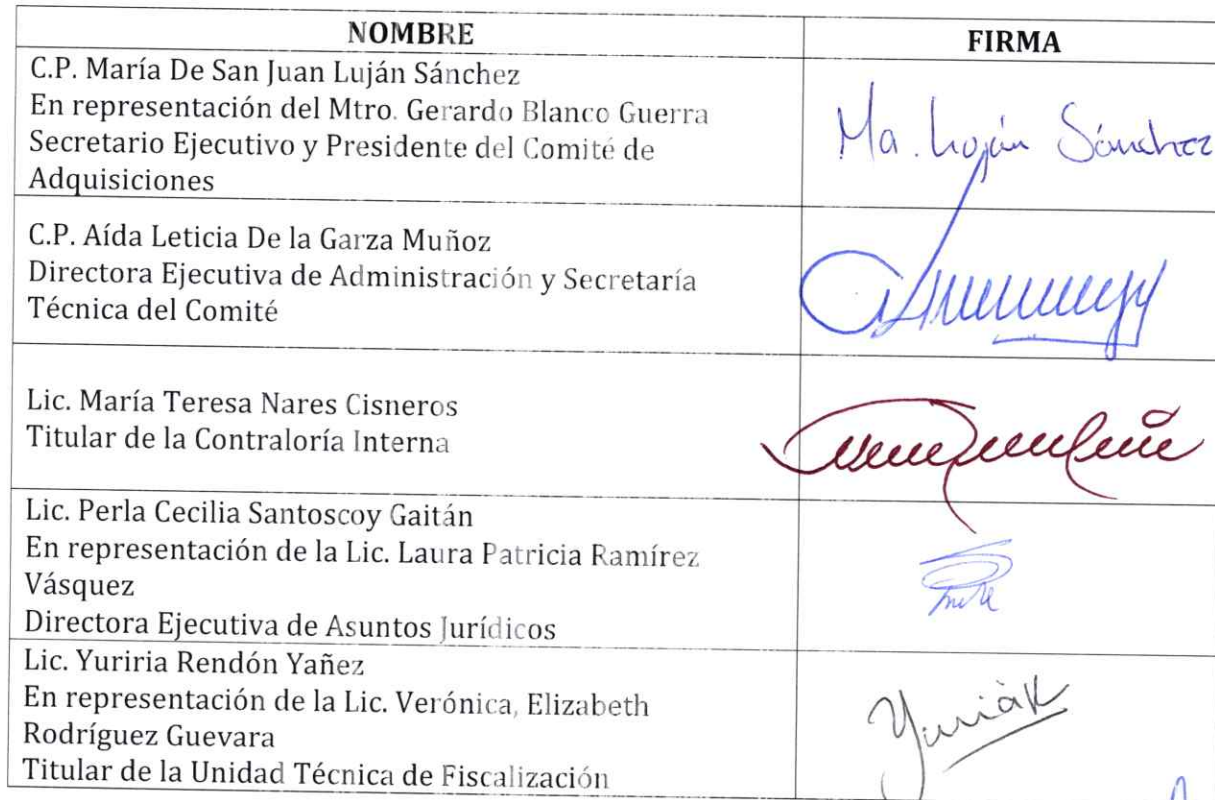 NOMBRE
FIRMA
C.P. María De San Juan Luján Sánchez
En representación del Mtro. Gerardo Blanco Guerra
Secretario Ejecutivo y Presidente del Comité de
Adquisiciones
Ma. Luján Sánchez
C.P. Aída Leticia De la Garza Muñoz
Directora Ejecutiva de Administración y Secretaría
Técnica del Comité
Lic. María Teresa Nares Cisneros
Titular de la Contraloría Interna
Lic. Perla Cecilia Santoscoy Gaitán
En representación de la Lic. Laura Patricia Ramírez
Vásquez
Directora Ejecutiva de Asuntos Jurídicos
Lic. Yuriria Rendón Yañez
En representación de la Lic. Verónica, Elizabeth
Rodríguez Guevara
Titular de la Unidad Técnica de Fiscalización